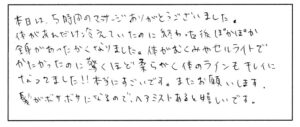 本日は、5時間のマッサージありがとうございました。
体があれだけ冷えていたのに終わった後ぽかぽか
全身があったかくなりました。体がむくみやセルライトで
かたかったのに驚くほど柔らかく体のラインもキレイに
なってました!!本当にすごいです。またお願いします。
髪がボサボサになるので、ヘアミストあると嬉しいです。